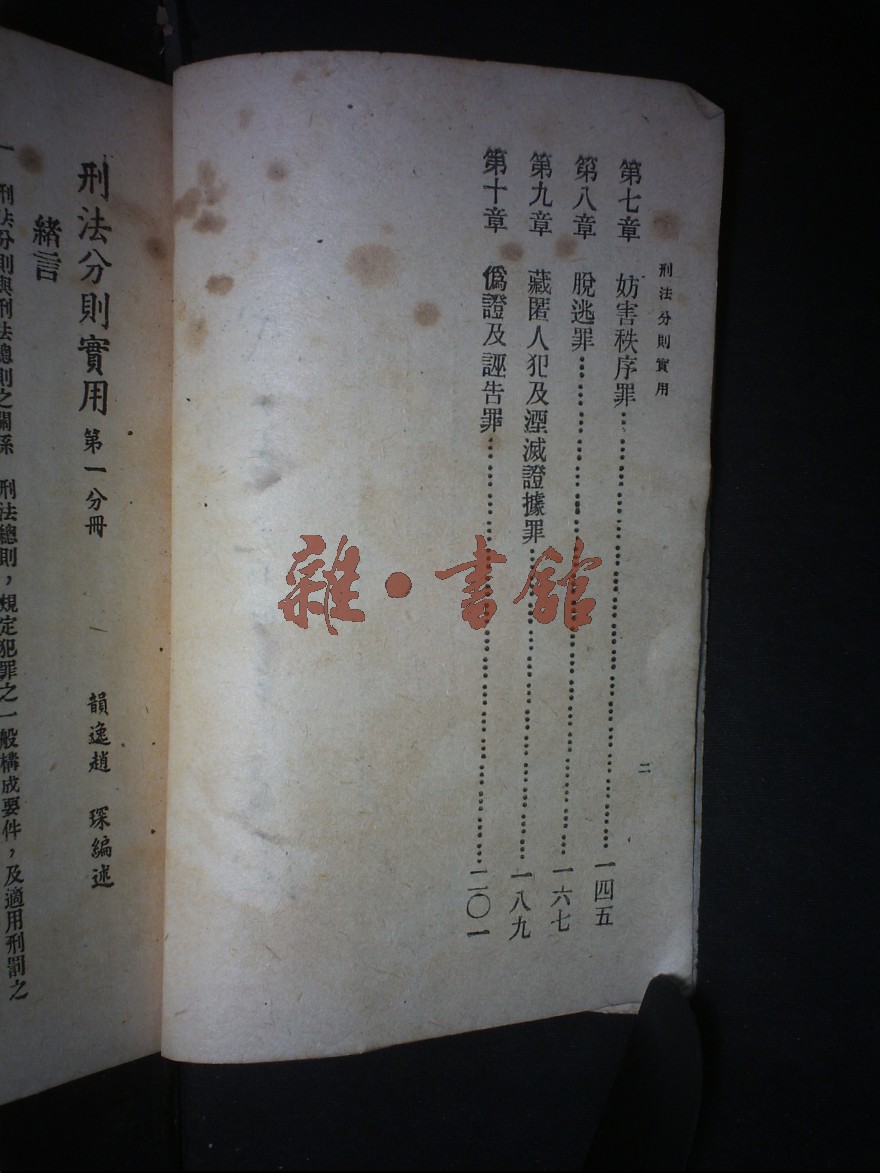 刑法分則實用
二
第七章 妨害秩序罪……一四五
第八章 脫逃罪……一六七
第九章 藏匿人犯及湮滅證據罪……一八九
第十章 僞證及誣告罪……二〇一
刑法分則實用 第一分冊
韻逸趙 琛編述
緒言
一 刑法分則與刑法總則之關係 刑法總則，規定犯罪之一般構成要件，及適用刑罰之
雜·書館